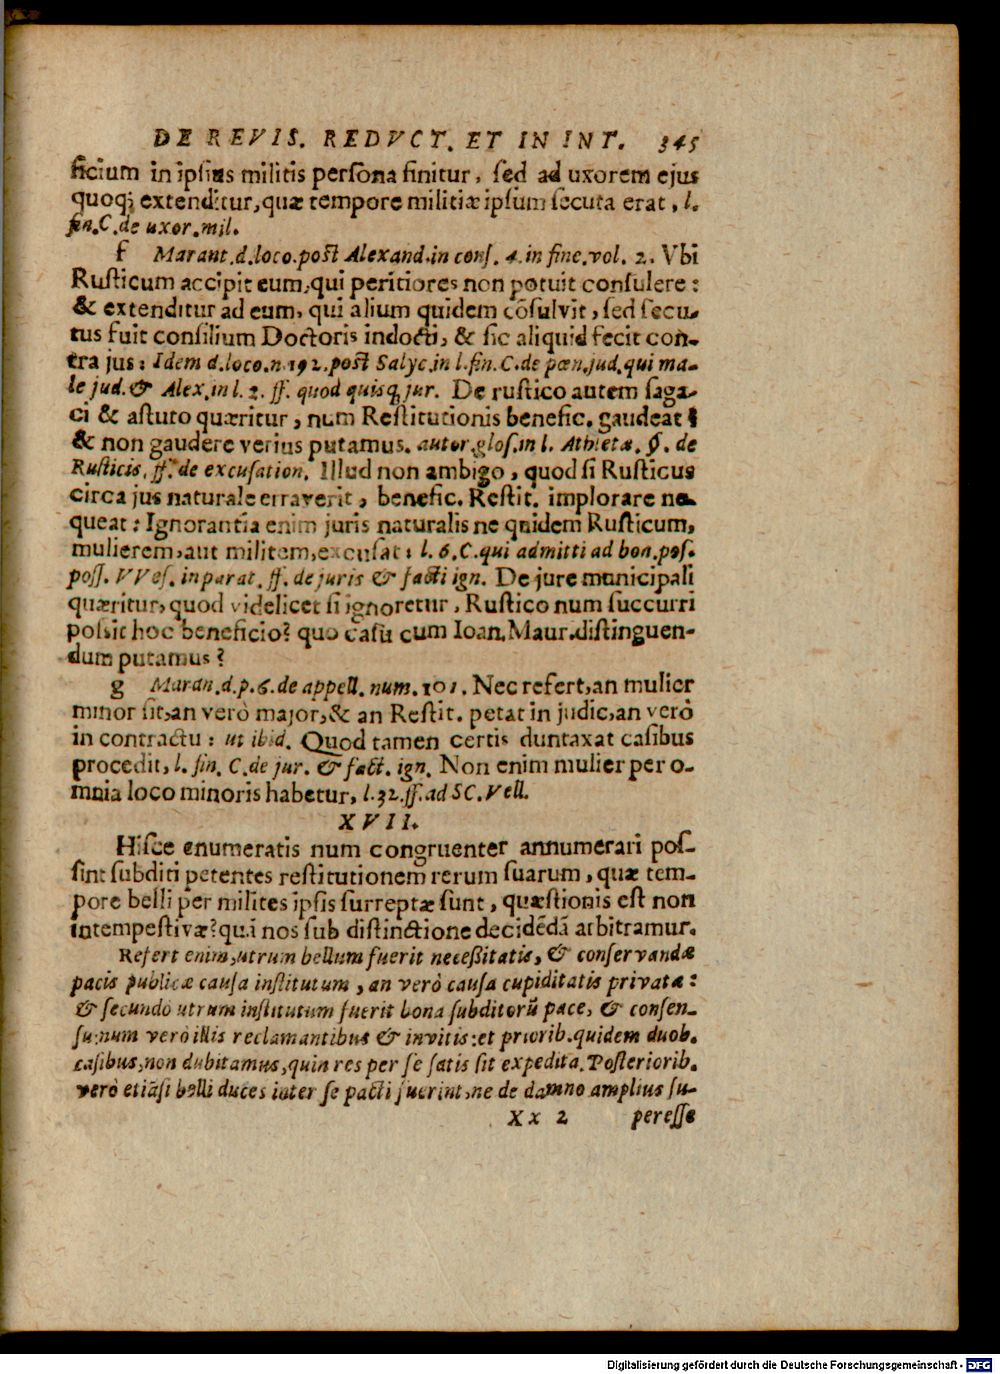 DE REVIS. REDVCT. ET IN INT. 345
ficium in ipsius militis persona finitur, sed ad uxorem ejus
quoq; extenditur, quæ tempore militiæ ipsum secuta erat, l.
fin. C. de uxor. mil.
f Marant. d. loco. post Alexand. in cons. 4. in fine. vol. 2. Vbi
Rusticum accipit eum, qui peritiores non potuit consulere:
& extenditur ad eum, qui alium quidem cõsulvit, sed secu-
tus fuit consilium Doctoris indocti, & sic aliquid fecit con-
tra jus: Idem d. loco. n. 192. post Salyc. in l. fin. C. de pœn. jud. qui ma-
le jud. & Alex. in l. 2. ff. quod quisq; jur. De rustico autem saga-
ci & astuto quæritur, num Restitutionis benefic. gaudeat?
& non gaudere verius putamus. autor. glos. in l. Athletæ. §. de
Rusticis. ff. de excusation. Illud non ambigo, quod si Rusticus
circa jus naturale erraverit, benefic. Restit. implorare ne-
queat: Ignorantia enim juris naturalis ne quidem Rusticum,
mulierem, aut militem, excusat: l. 6. C. qui admitti ad bon. pos.
poss. VVes. in parat. ff. de juris & facti ign. De jure municipali
quæritur, quod videlicet si ignoretur, Rustico num succurri
possit hoc beneficio? quo casu cum Ioan. Maur. distinguen-
dum putamus?
g Maran. d. p. 6. de appell. num. 101. Nec refert, an mulier
minor sit, an verò major, & an Restit. petat in judic, an verò
in contractu: ut ibid. Quod tamen certis duntaxat casibus
procedit, l. fin. C. de jur. & fact. ign. Non enim mulier per o-
mnia loco minoris habetur, l. 32. ff. ad SC. Vell.
XVII.
Hisce enumeratis num congruenter annumerari pos-
sint subditi petentes restitutionem rerum suarum, quæ tem-
pore belli per milites ipsis surreptæ sunt, quæstionis est non
intempestivæ? quã nos sub distinctione decidẽdã arbitramur.
Refert enim, utrum bellum fuerit necessitatis, & conservandæ
pacis publicæ causa institutum, an verò causa cupiditatis privatæ:
& secundò utrum institutum fuerit bona subditorũ pace, & consen-
su: num verò illis reclamantibus & invitis: et priorib. quidem duob.
casibus, non dubitamus, quin res per se satis sit expedita. Posteriorib.
verò etiãsi belli duces inter se pacti fuerint, ne de damno amplius su-
Xx 2 peresse
Digitalisierung gefördert durch die Deutsche Forschungsgemeinschaft - DFG